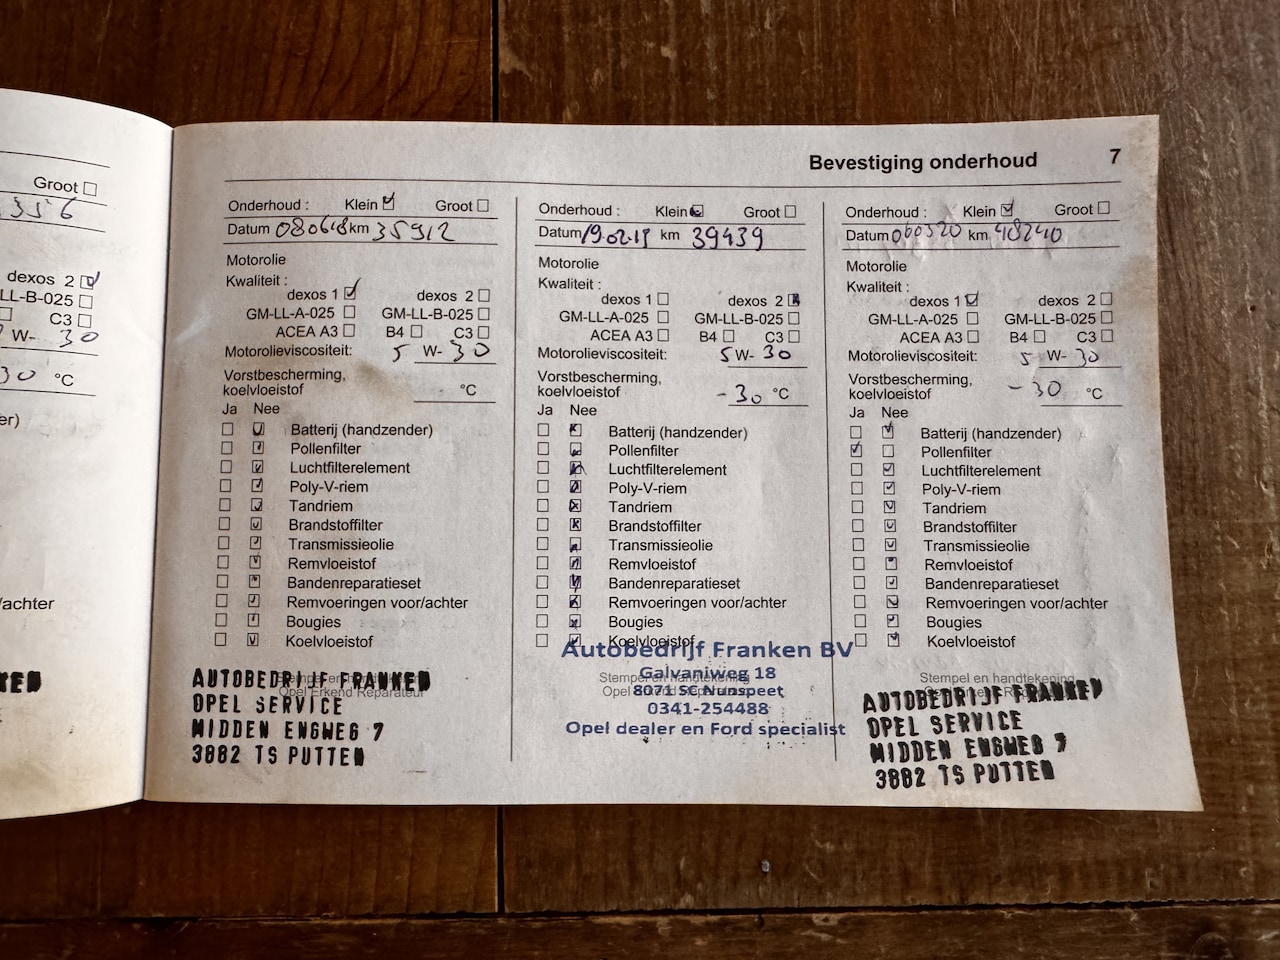 Groot
356
dexos 2
LL-B-025
C3
W- 30
30 °C
er)
/achter
KEN
Bevestiging onderhoud 7
Onderhoud : Klein Groot
Datum 080618 km 35912
Motorolie
Kwaliteit :
dexos 1 dexos 2
GM-LL-A-025 GM-LL-B-025
ACEA A3 B4 C3
Motorolieviscositeit: 5 W- 30
Vorstbescherming,
koelvloeistof °C
Ja Nee
Batterij (handzender)
Pollenfilter
Luchtfilterelement
Poly-V-riem
Tandriem
Brandstoffilter
Transmissieolie
Remvloeistof
Bandenreparatieset
Remvoeringen voor/achter
Bougies
Koelvloeistof
Stempel en handtekening
Opel Erkend Reparateur
AUTOBEDRIJF FRANKEN
OPEL SERVICE
MIDDEN ENGWEG 7
3882 TS PUTTEN
Onderhoud : Klein Groot
Datum 19.02.19 km 39439
Motorolie
Kwaliteit :
dexos 1 dexos 2
GM-LL-A-025 GM-LL-B-025
ACEA A3 B4 C3
Motorolieviscositeit: 5 W- 30
Vorstbescherming,
koelvloeistof -30 °C
Ja Nee
Batterij (handzender)
Pollenfilter
Luchtfilterelement
Poly-V-riem
Tandriem
Brandstoffilter
Transmissieolie
Remvloeistof
Bandenreparatieset
Remvoeringen voor/achter
Bougies
Koelvloeistof
Stempel en handtekening
Autobedrijf Franken BV
Galvaniweg 18
8071 SC Nunspeet
0341-254488
Opel dealer en Ford specialist
Onderhoud : Klein Groot
Datum 060520 km 48240
Motorolie
Kwaliteit :
dexos 1 dexos 2
GM-LL-A-025 GM-LL-B-025
ACEA A3 B4 C3
Motorolieviscositeit: 5 W- 30
Vorstbescherming,
koelvloeistof -30 °C
Ja Nee
Batterij (handzender)
Pollenfilter
Luchtfilterelement
Poly-V-riem
Tandriem
Brandstoffilter
Transmissieolie
Remvloeistof
Bandenreparatieset
Remvoeringen voor/achter
Bougies
Koelvloeistof
Stempel en handtekening
AUTOBEDRIJF FRANKEN
OPEL SERVICE
MIDDEN ENGWEG 7
3882 TS PUTTEN